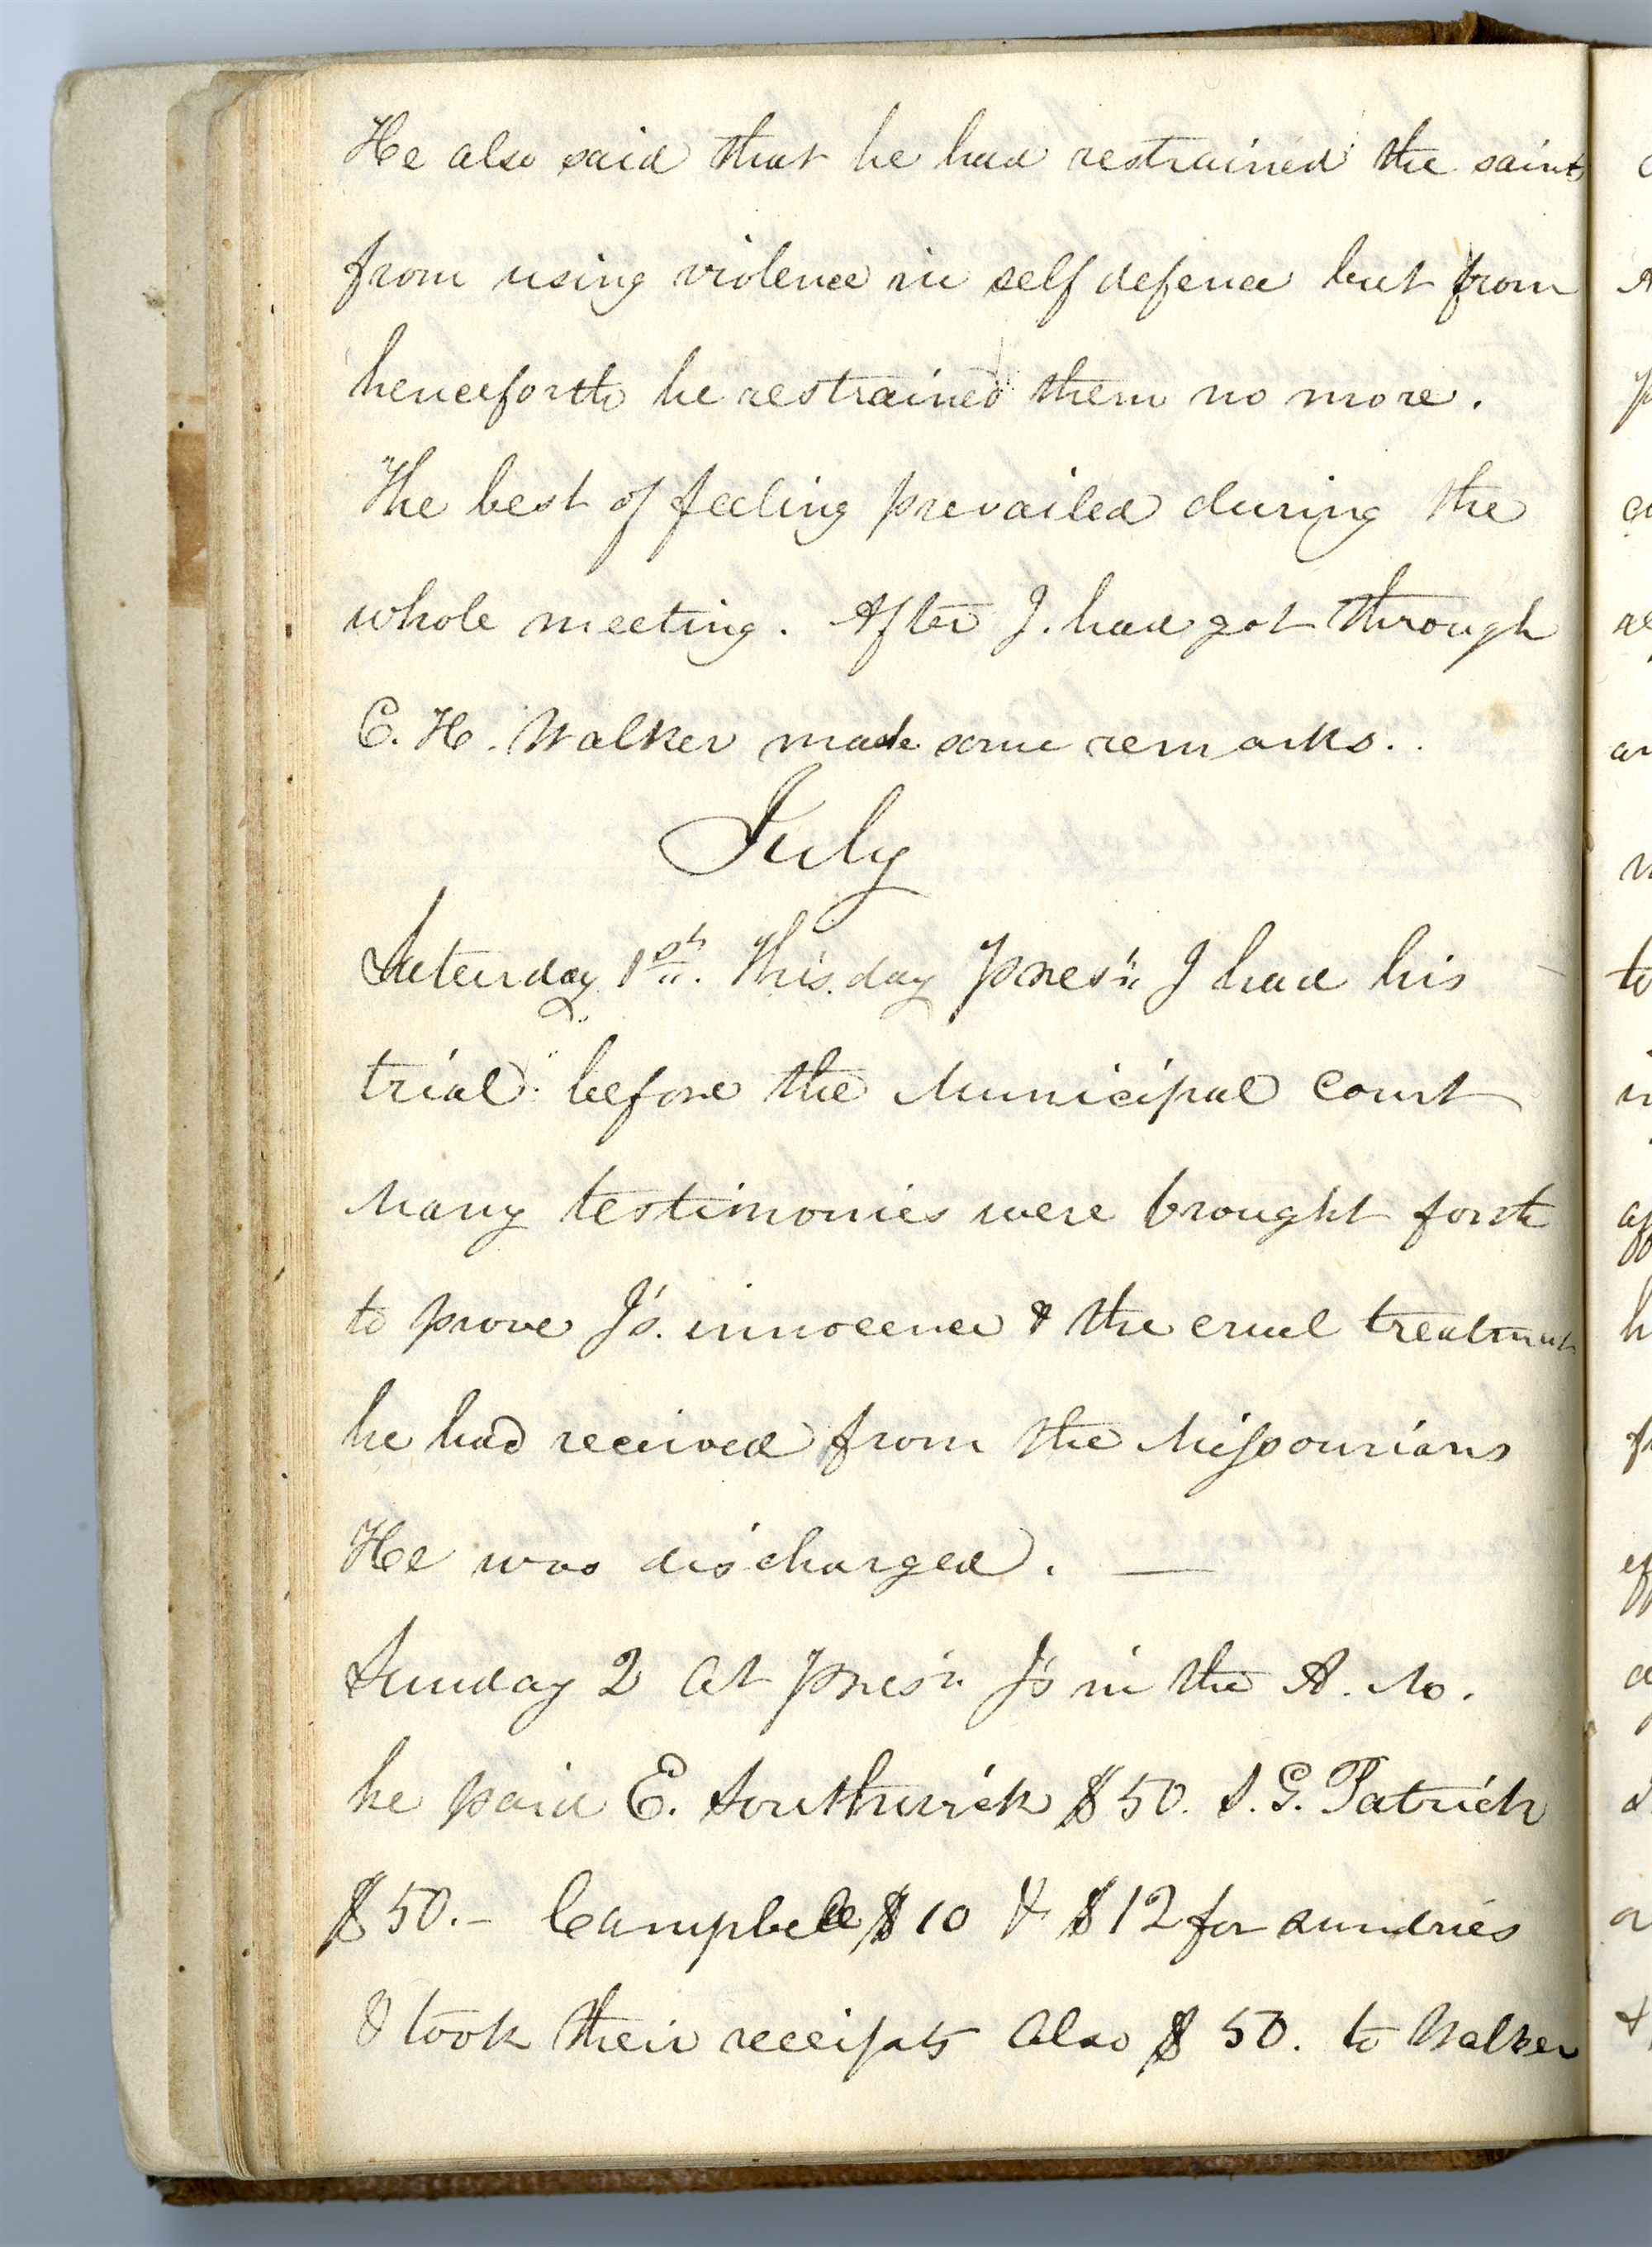 He also said that he had restrained the saints
from using violence in self defence but from
henceforth he restrained them no more.
The best of feeling prevailed during the
whole meeting. After J. had got through
C. H. Walker made some remarks.
July
Saturday 1st. This day Pres.t J had his
trial before the Municipal Court
Many testimonies were brought forth
to prove J's. innocence & the cruel treatment
he had received from the Missourians
He was discharged. —
Sunday 2 At Pres.t J's in the A. M.
he paid E. Southwick $50. S. G. Patrick
$50.- Campbell $10 & $12 for sundries
& took their receipts Also $50. to Walker